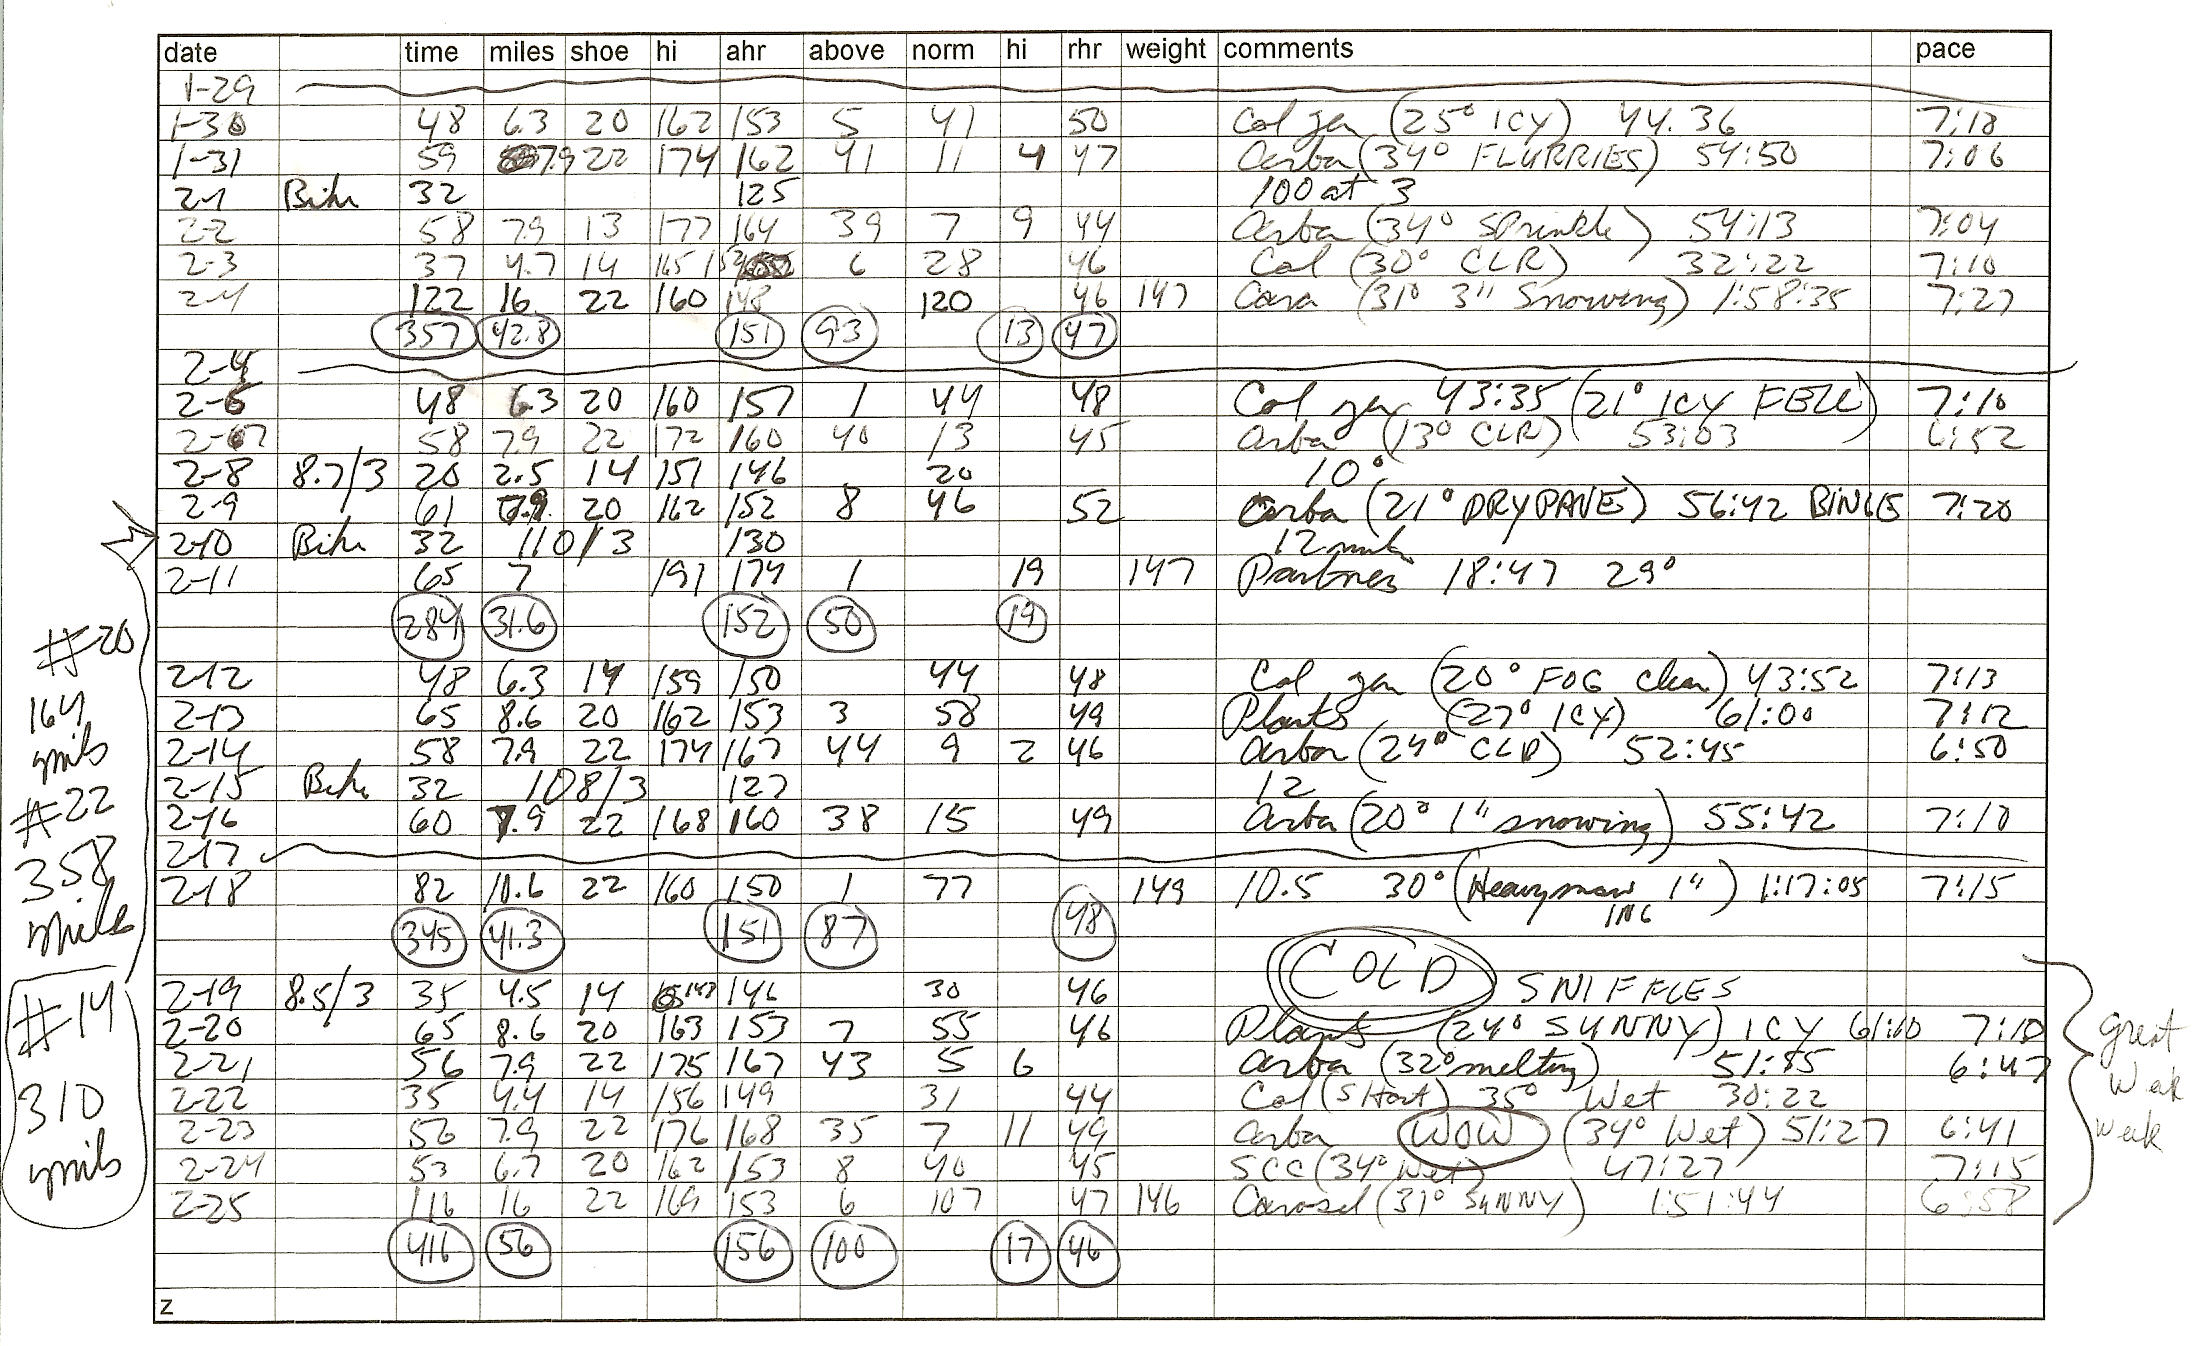 date time miles shoe hi ahr above norm hi rhr weight comments pace
1-29
1-30 48 6.3 20 162 153 5 41 50 Col gen (25° ICY) 44.36 7:18
1-31 59 7.9 22 174 162 41 11 4 47 Arbor (34° FLURRIES) 54:50 7:06
2-1 Bike 32 125 100 at 3
2-2 58 7.9 13 177 164 39 7 9 44 Arbor (34° Sprinkle) 54:13 7:04
2-3 37 4.7 14 165 6 28 46 Col (30° CLR) 32:22 7:10
2-4 122 16 22 160 148 120 46 147 (31° 3" Snowing) 1:58:35 7:27
357 42.8 151 93 13 47
2-5
2-6 48 6.3 20 160 157 1 44 48 Col gen 43:35 (21° ICY FELL) 7:10
2-7 58 7.9 22 172 160 40 13 45 Arbor (13° CLR) 53:03 6:52
2-8 8.7/3 20 2.5 14 151 146 20 10°
2-9 61 7.9 20 162 152 8 46 52 Arbor (21° DRY PAVE) 56:42 7:20
2-10 Bike 32 110/3 130 12
2-11 65 7 191 174 1 19 147 Partner 18:47 29°
284 31.6 152 50 19
#20
164
miles
#22
358
miles
#14
310
miles
2-12 48 6.3 14 159 150 44 48 Col gen (20° FOG clear) 43:52 7:13
2-13 65 8.6 20 162 153 3 58 49 Plants (27° ICY) 61:00 7:12
2-14 58 7.9 22 174 167 44 9 2 46 Arbor (24° CLD) 52:45 6:50
2-15 Bike 32 108/3 127 12
2-16 60 7.9 22 168 160 38 15 49 Arbor (20° 1" snowing) 55:42 7:10
2-17
2-18 82 10.6 22 160 150 1 77 149 10.5 30° (Heavy snow ING 1") 1:17:05 7:15
345 41.3 151 87 48
COLD SNIFFLES
2-19 8.5/3 35 4.5 14 147 146 30 46
2-20 65 8.6 20 163 153 7 55 46 Plants (24° SUNNY) ICY 61:10 7:10
2-21 56 7.9 22 175 167 43 5 6 Arbor (32° melting) 51:55 6:47
2-22 35 4.4 14 156 149 31 44 Col (Short) 35° Wet 30:22
2-23 56 7.9 22 176 168 35 7 11 49 Arbor WOW (34° Wet) 51:27 6:41
2-24 53 6.7 20 162 153 8 40 45 SCC (34° Wet) 47:27 7:15
2-25 116 16 22 169 153 6 107 47 146 Carosel (31° SUNNY) 1:51:44 6:58
great
Weak
Weak
416 56 156 100 17 46
z